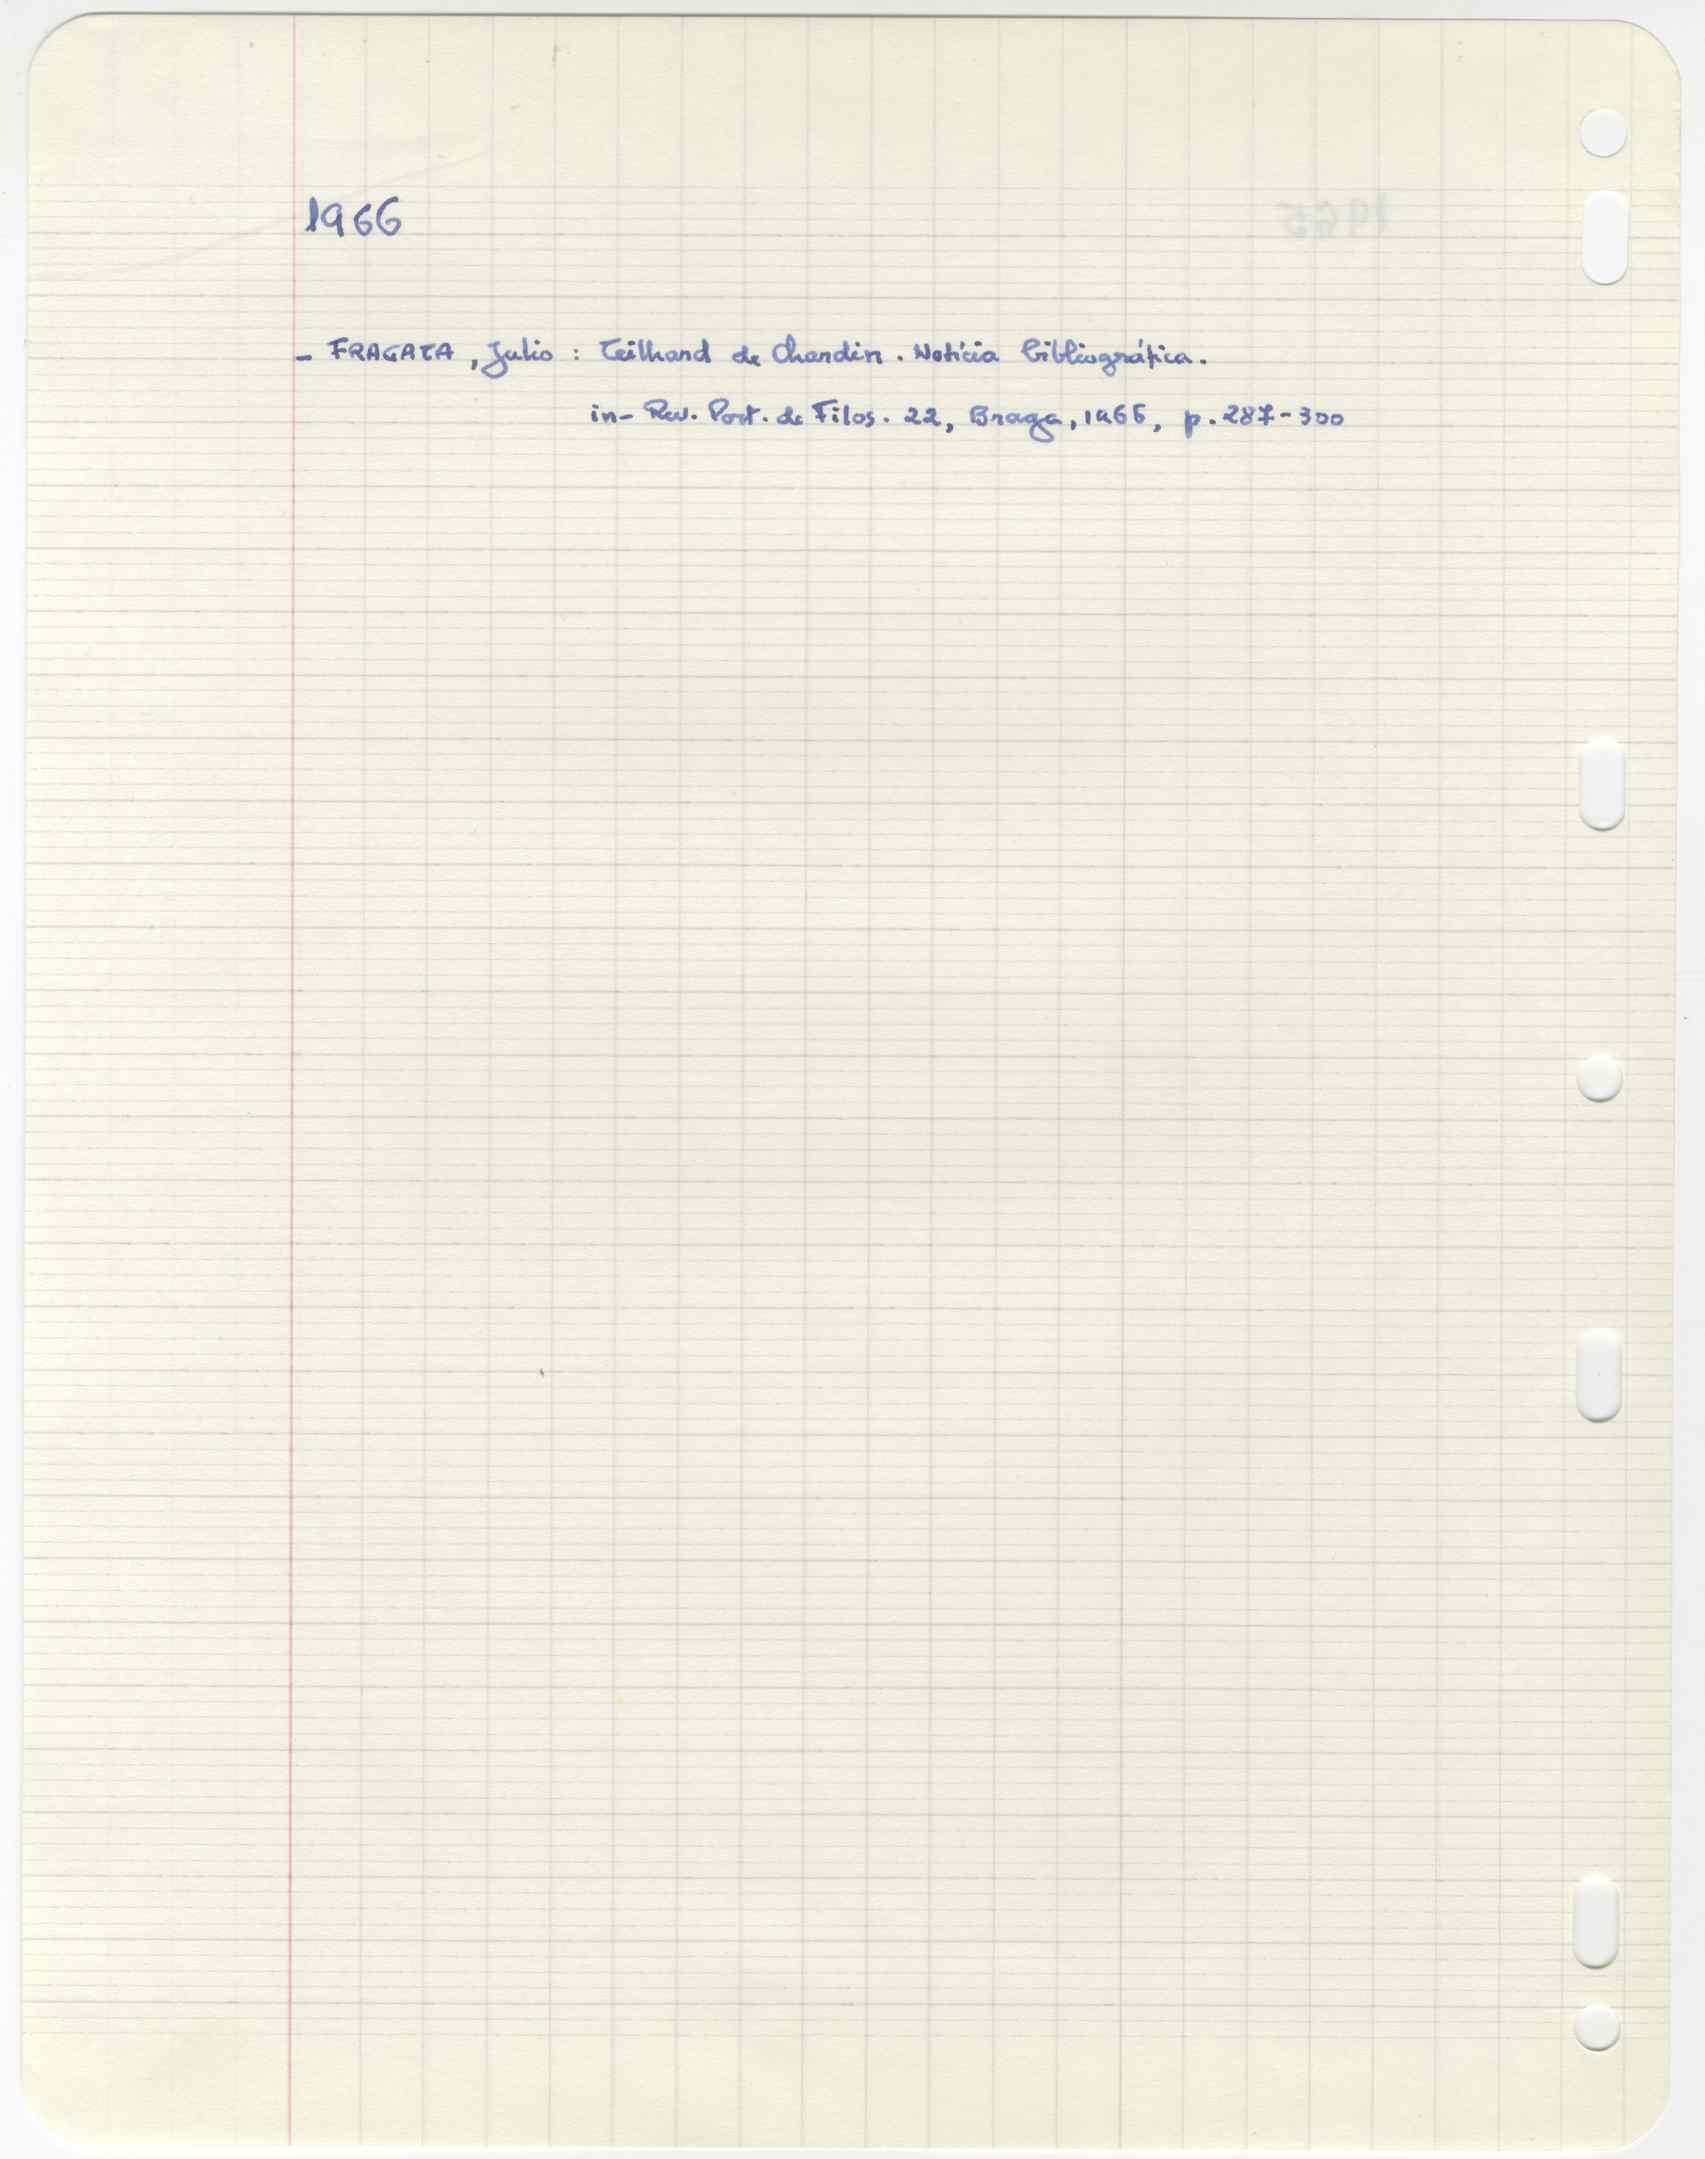 1966
- FRAGATA, Julio : Teilhard de Chardin. Notícia bibliográfica.
in- Rev. Port. de Filos. 22, Braga, 1966, p. 287-300